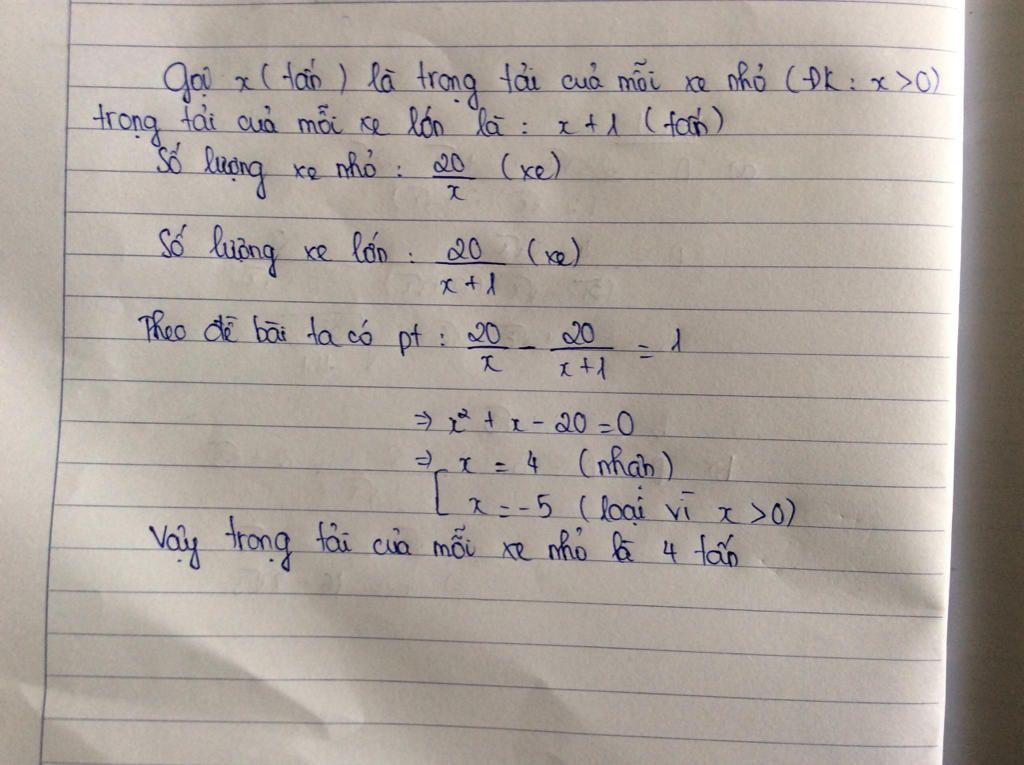 Gọi x (tấn) là trọng tải cuả mỗi xe nhỏ (ĐK : x > 0)
trọng tải cuả mỗi xe lớn là : x + 1 (tấn)
Số lượng xe nhỏ : 20/x (xe)
Số lượng xe lớn : 20/(x + 1) (xe)
Theo đề bài ta có pt : 20/x - 20/(x + 1) = 1
⇒ x² + x - 20 = 0
⇒ [ x = 4 (nhận)
x = -5 (loại vì x > 0)
Vậy trọng tải của mỗi xe nhỏ là 4 tấn